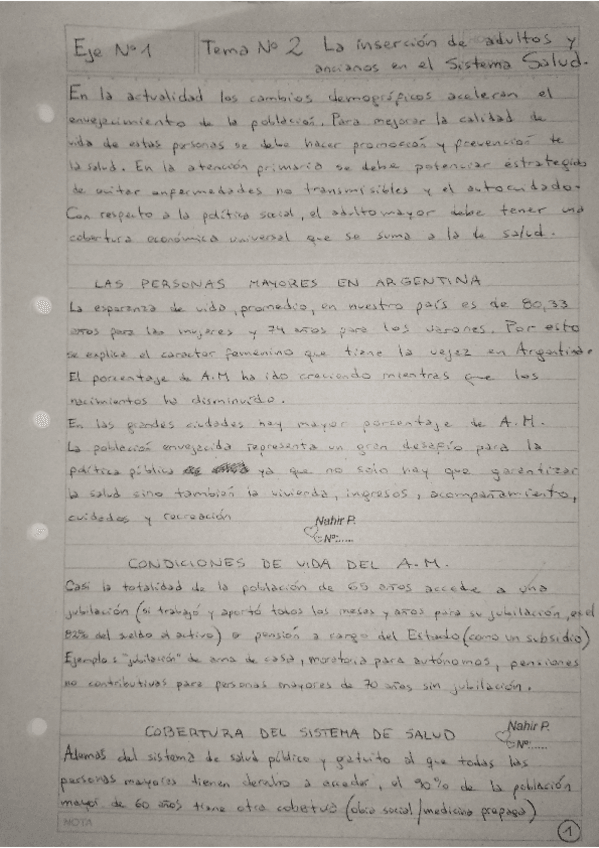 Eje Nº 1 Tema Nº 2 La inserción de adultos y
ancianos en el Sistema Salud.
En la actualidad los cambios demográficos aceleran el
envejecimiento de la población. Para mejorar la calidad de
vida de estas personas se debe hacer promoción y prevención de
la salud. En la atención primaria se debe potenciar estrategias
de evitar enfermedades no transmisibles y el autocuidado.
Con respecto a la política social, el adulto mayor debe tener una
cobertura económica universal que se suma a la de salud.
LAS PERSONAS MAYORES EN ARGENTINA
La esperanza de vida, promedio, en nuestro país es de 80,33
años para las mujeres y 74 años para los varones. Por esto
se explica el caracter femenino que tiene la vejez en Argentina.
El porcentaje de A.M ha ido creciendo mientras que los
nacimientos ha disminuido.
En las grandes ciudades hay mayor porcentaje de A.M.
La población envejecida representa un gran desafío para la
política pública ya que no solo hay que garantizar
la salud sino también la vivienda, ingresos, acompañamiento,
cuidados y recreación
Nahir P.
Nº:.....
CONDICIONES DE VIDA DEL A.M.
Casi la totalidad de la población de 65 años accede a una
jubilación (si trabajó y aportó todos los meses y años para su jubilación, es el
82% del sueldo al activo) o pensión a cargo del Estado (como un subsidio)
Ejemplo: "jubilación" de ama de casa, moratoria para autónomos, pensiones
no contributivas para personas mayores de 70 años sin jubilación.
COBERTURA DEL SISTEMA DE SALUD
Nahir P.
Nº:.....
Ademas del sistema de salud público y gratuito al que todas las
personas mayores tienen derecho a acceder, el 90% de la población
mayor de 60 años tiene otra cobertura (obra social/medicina prepaga)
NOTA
1